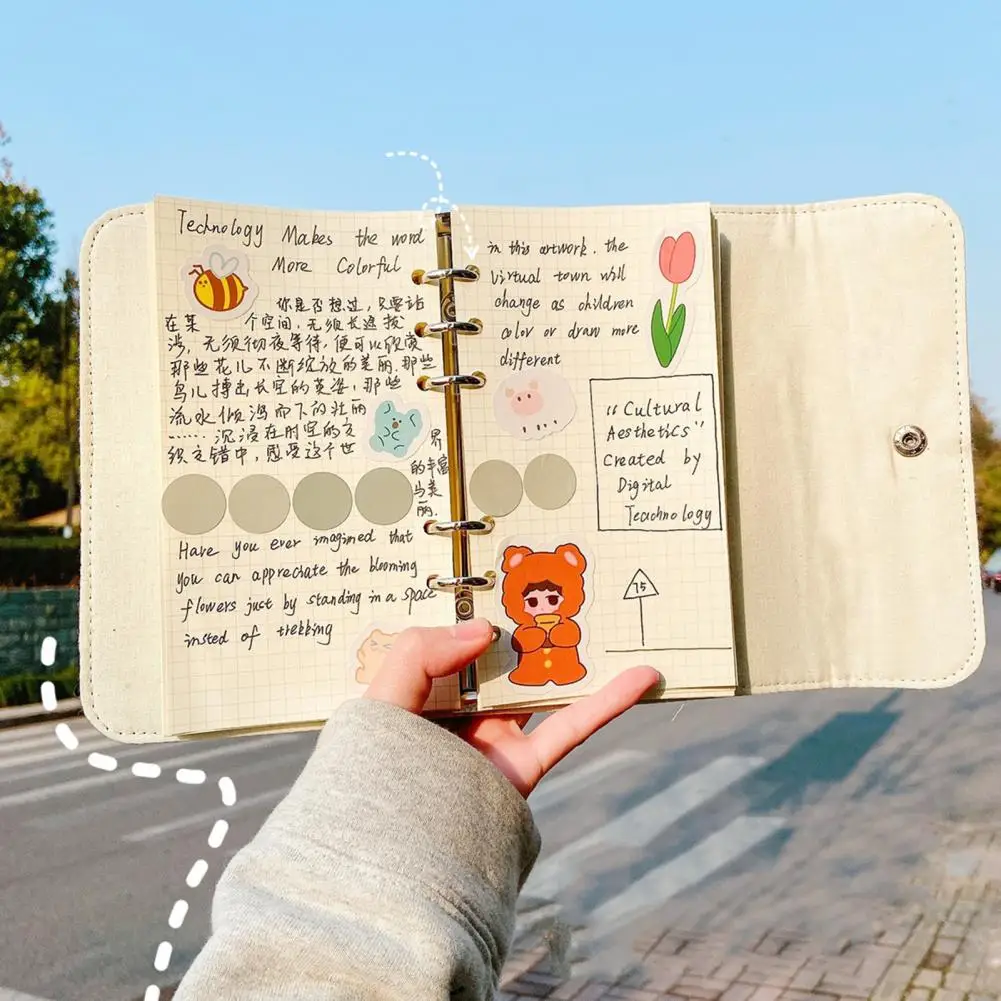 Technology Makes the word
More Colorful
你是否想过，只要站
在某 个空间，无须长途跋
涉，无须彻夜等待，便可以欣赏
那些花儿不断绽放的美丽.那些
鸟儿搏击长空的英姿，那些
流水倾泻而下的壮丽
......沉浸在时空的交
织交错中，感受这个世
界
的丰富
与美
丽.
Have you ever imagined that
you can appreciate the blooming
flowers just by standing in a space
insted of trekking
in this artwork. the
virtual town will
change as children
color or draw more
different
"Cultural
Aesthetics"
Created by
Digital
Teachnology
75